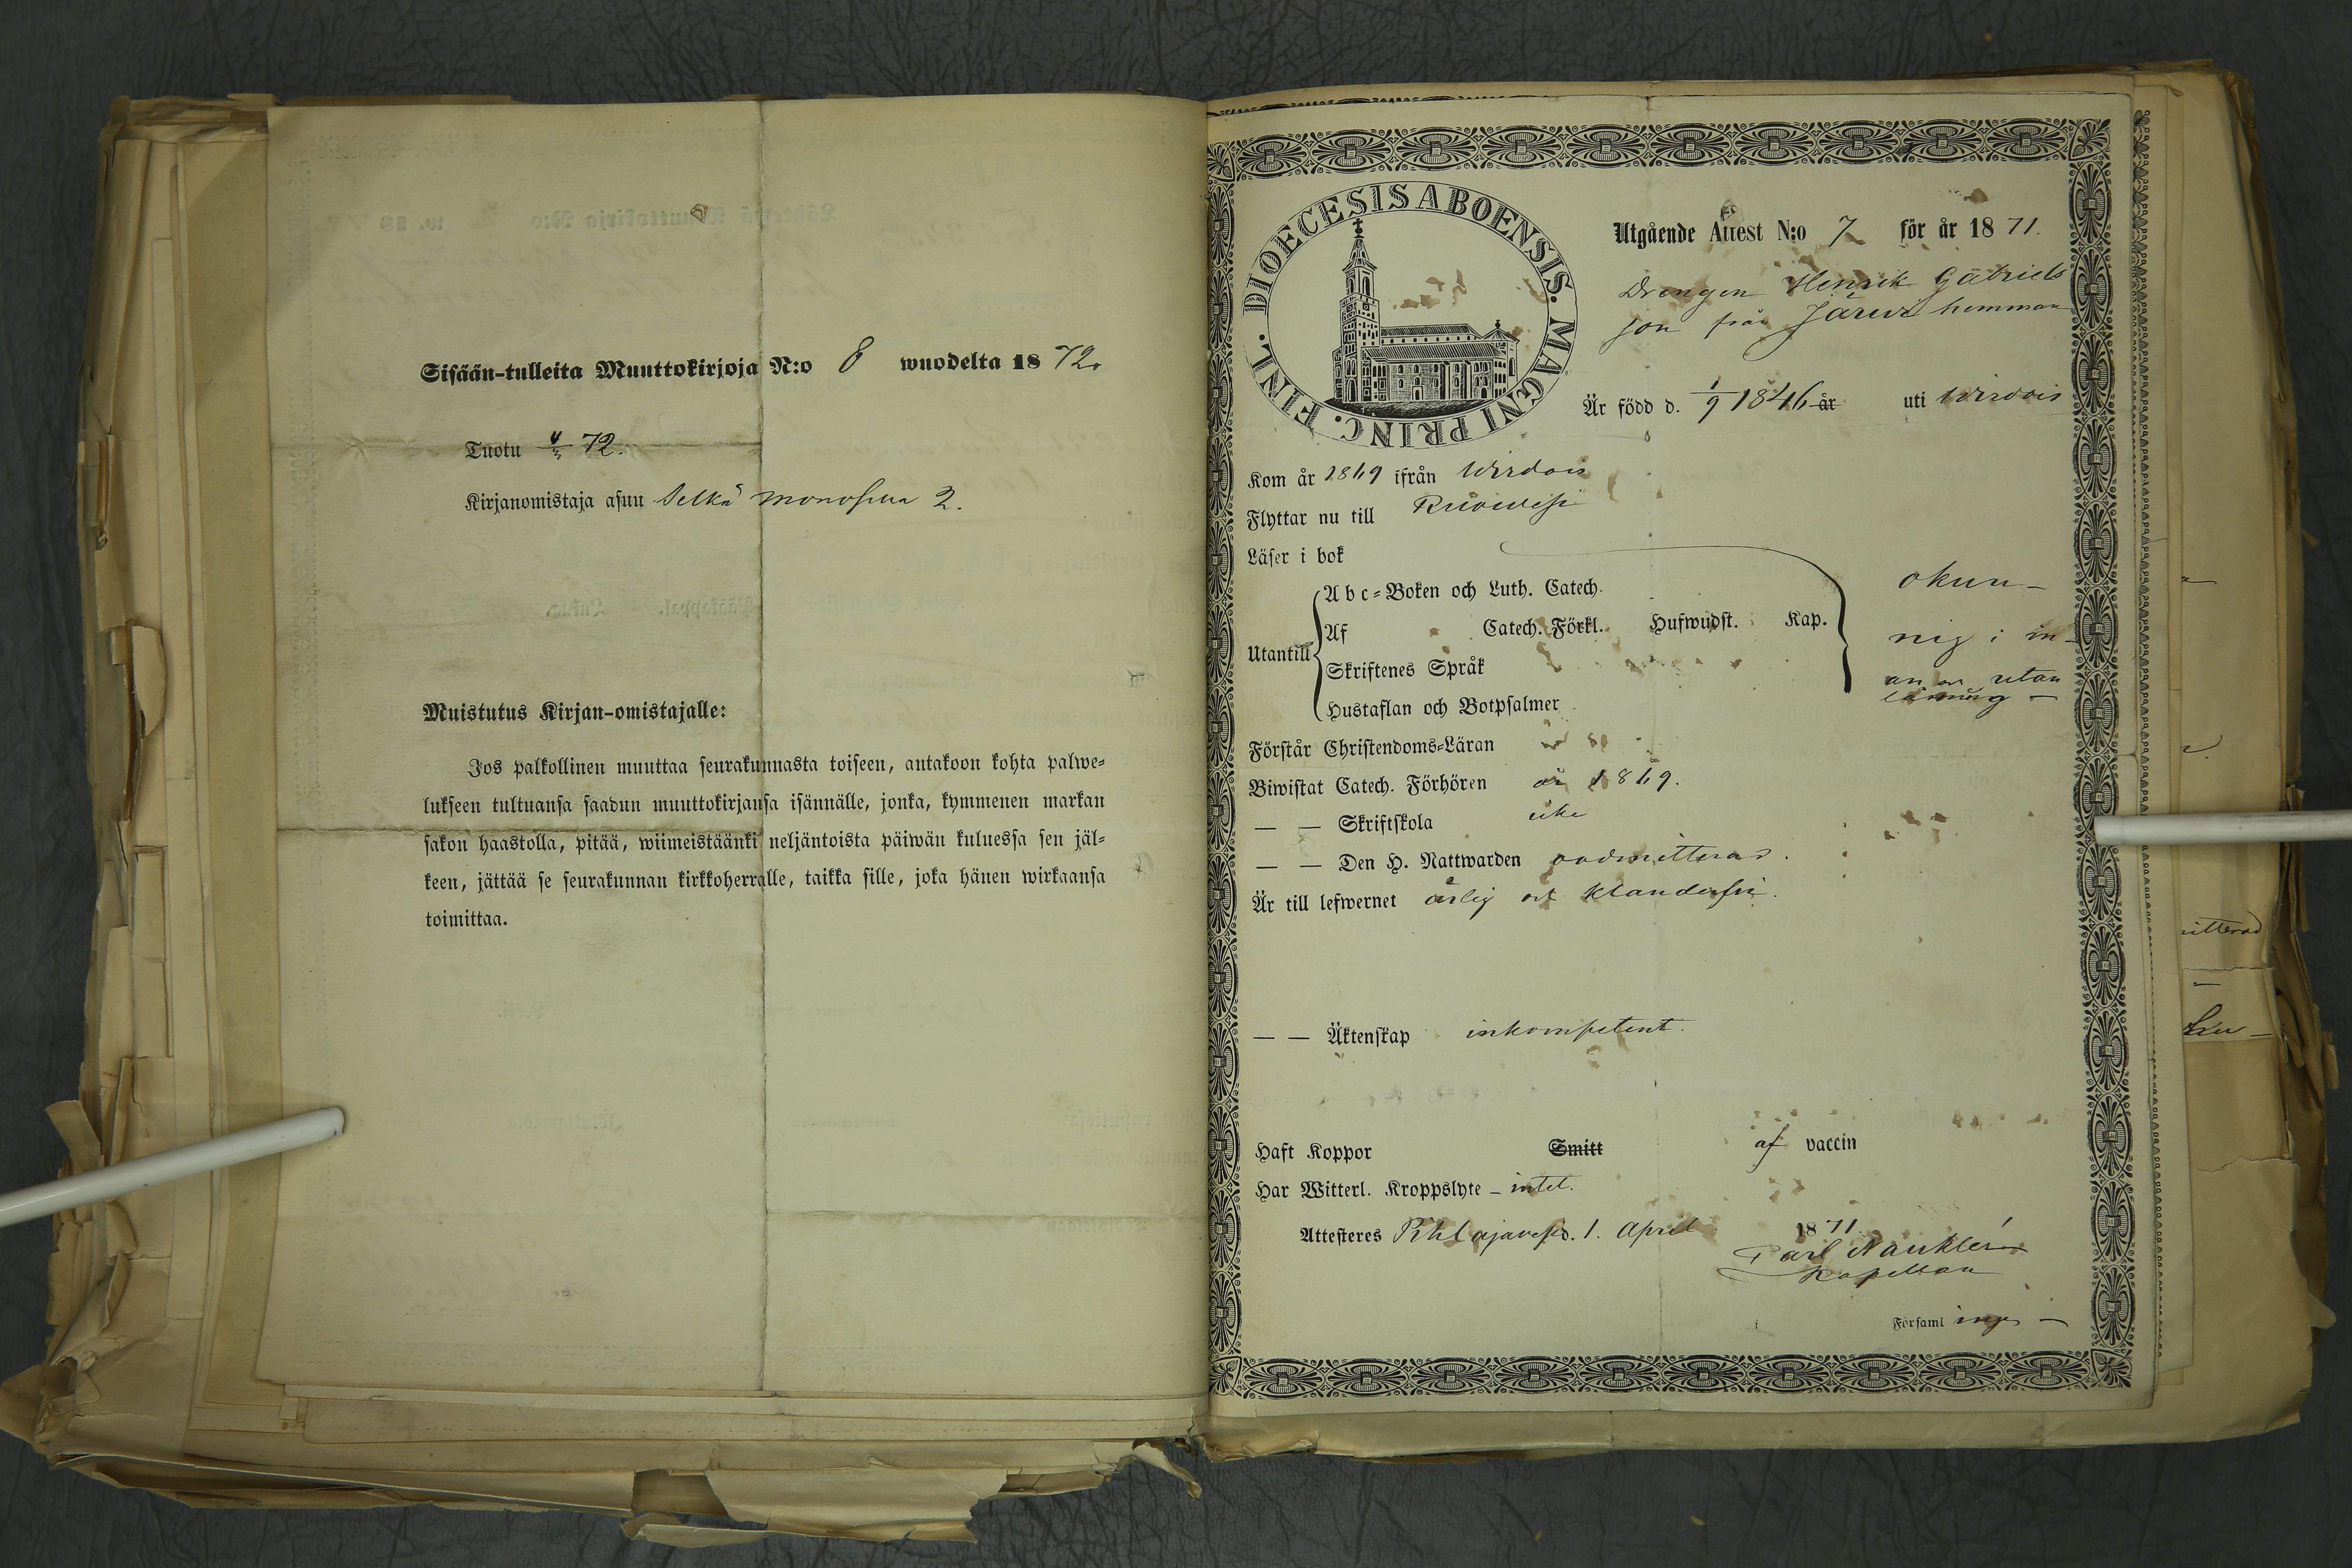 Sisään-tulleita Muuttokirjoja N:o 8 wuodelta 1872.
Tuotu 4/3 72.
Kirjanomistaja asuu Selkä 2.
Muistutus Kirjan-omistajalle:
Jos palkollinen muuttaa seurakunnasta toiseen, antakoon kohta palwe-
lukseen tultuansa saadun muuttokirjansa isännälle, jonka, kymmenen markan
sakon haastolla, pitää, wiimeistäänki neljäntoista päiwän kuluessa sen jäl-
keen, jättää se seurakunnan kirkkoherralle, taikka sille, joka hänen wirkaansa
toimittaa.
DIOECESIS ABOENSIS. MAGNI PRINC. FINL.
Utgående Attest N:o 7 för år 1871.
Drengen Henrik Gabriels
son från Järvi hemman
Är född d. 1/9 1846 år uti Wirdois
Kom år 1869 ifrån Wirdois
Flyttar nu till Ruowesi
Läser i bok
Utantill
Abc-Boken och Luth. Catech.
Af Catech. Förkl. Hufwudst. Kap.
Skriftenes Språk
Hustaflan och Botpsalmer
okun-
nig i in-
an och utan
läsning
Förstår Christendoms-Läran
Biwistat Catech. Förhören år 1869.
— — Skriftskola icke
— — Den H. Nattwarden oadmitterad.
Är till lefwernet ärlig och klanderfri.
— — Äktenskap inkompetent.
Haft Koppor Smitt af vaccin
Har Witterl. Kroppslyte - intet.
Attesteres Pihlajavesi d. 1. April 1871.
Carl Nauklér
Kapellan
i Församl ingen
itterad